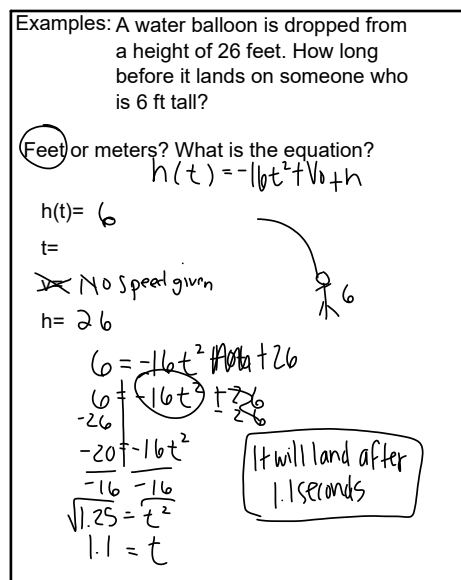 Examples: A water balloon is dropped from
a height of 26 feet. How long
before it lands on someone who
is 6 ft tall?
Feet or meters? What is the equation?
h(t) = -16t² + V₀ + h
h(t)= 6
t=
v= No speed given
6
h= 26
6 = -16t² + 26
6 = -16t² + 26
-26 - 26
-20 = -16t²
-16 -16
√1.25 = t²
1.1 = t
It will land after
1.1 seconds